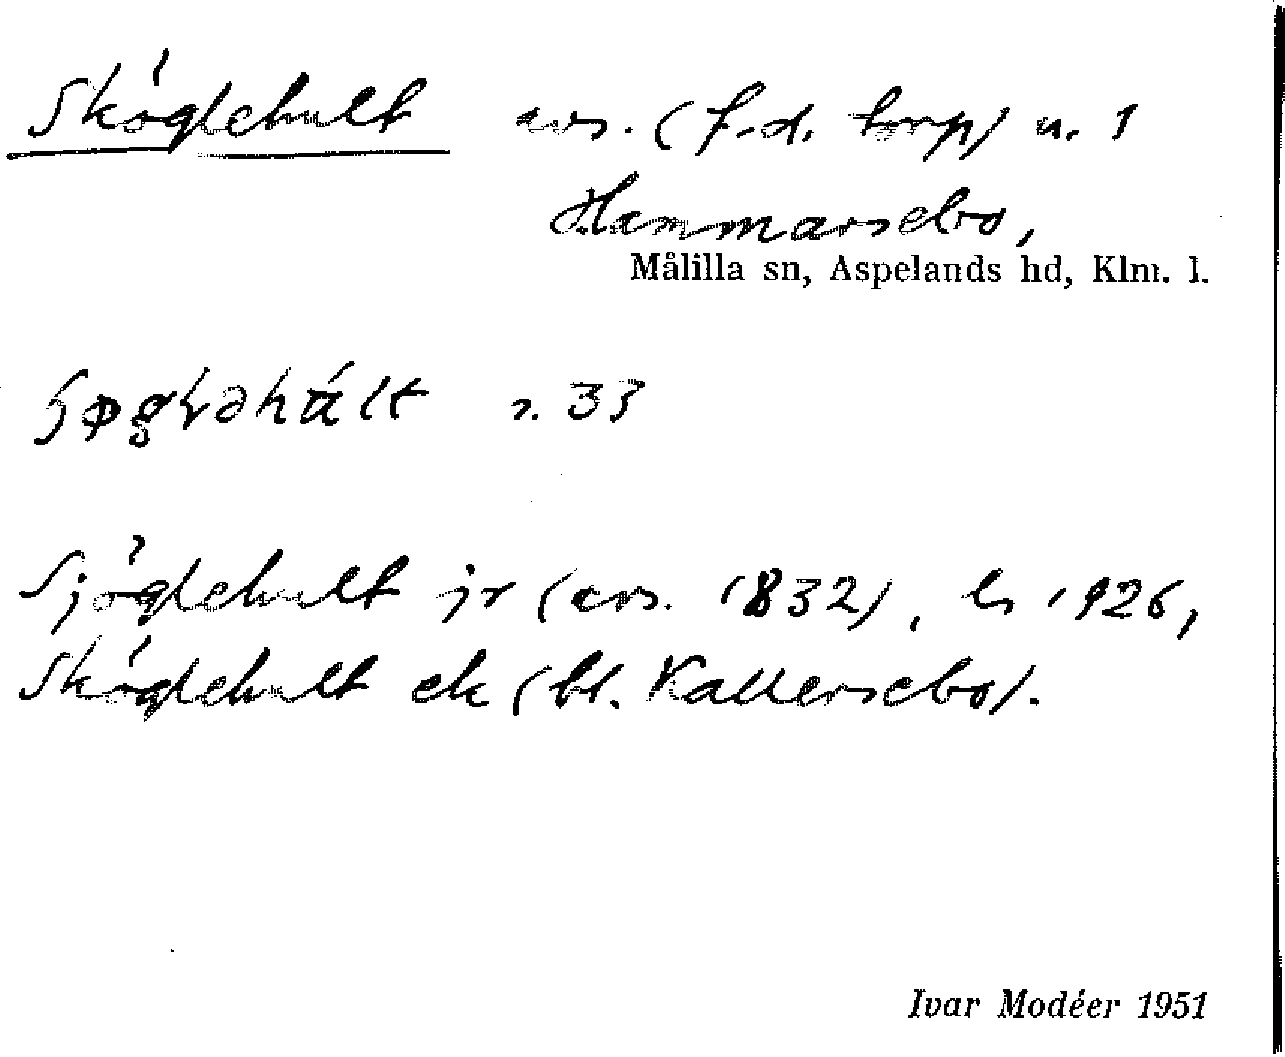 Sköglehult avs. (f.d. torp) u. 1
Hammarsebo,
Målilla sn, Aspelands hd, Klm. l.
s. 33
Sjöglehult jr (avs. 1832), ls 1926,
Sköglehult ek (bl. Kallersebo).
Ivar Modéer 1951